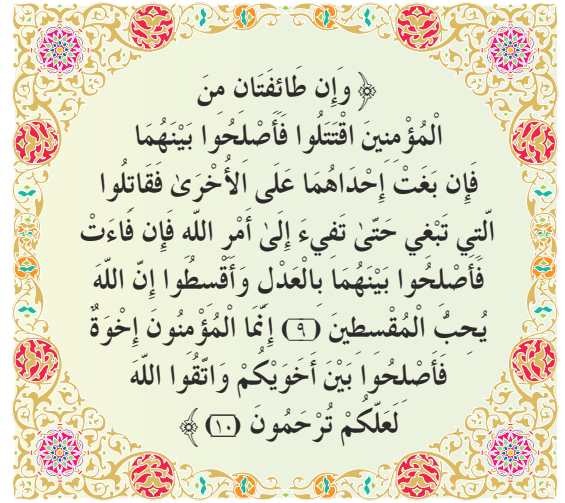 ﴿ وَإِن طَائِفَتَانِ مِنَ
الْمُؤْمِنِينَ اقْتَتَلُوا فَأَصْلِحُوا بَيْنَهُمَا
فَإِن بَغَتْ إِحْدَاهُمَا عَلَى الْأُخْرَىٰ فَقَاتِلُوا
الَّتِي تَبْغِي حَتَّىٰ تَفِيءَ إِلَىٰ أَمْرِ اللَّهِ فَإِن فَاءَتْ
فَأَصْلِحُوا بَيْنَهُمَا بِالْعَدْلِ وَأَقْسِطُوا إِنَّ اللَّهَ
يُحِبُّ الْمُقْسِطِينَ (٩) إِنَّمَا الْمُؤْمِنُونَ إِخْوَةٌ
فَأَصْلِحُوا بَيْنَ أَخَوَيْكُمْ وَاتَّقُوا اللَّهَ
لَعَلَّكُمْ تُرْحَمُونَ (١٠) ﴾